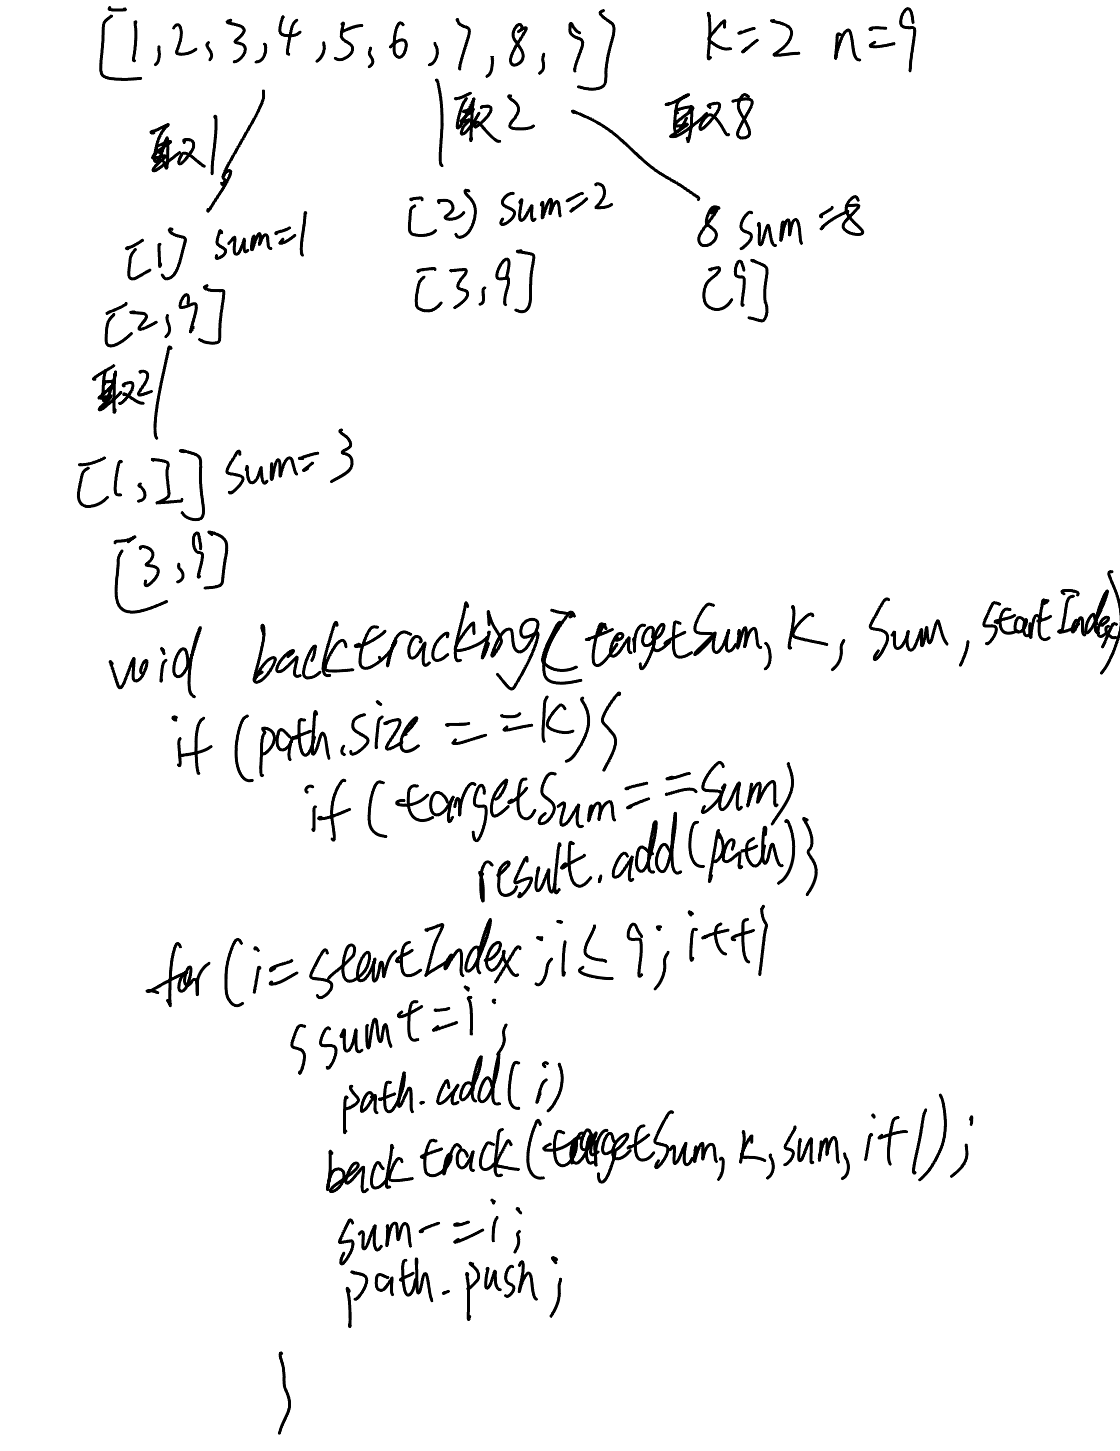 [1,2,3,4,5,6,7,8,9] K=2 n=9
取1 取2 取8
[1] sum=1 [2] sum=2 8 sum=8
[2,9] [3,9] [9]
取2
[1,2] sum=3
[3,9]
void backtracking(targetSum, K, Sum, startIndex)
if (path.size == K){
if (targetSum==Sum)
result.add(path)}
for (i=startIndex;i≤9;i++)
{sum+=i;
path.add(i)
backtrack(targetSum,K,sum,i+1);
sum-=i;
path.push;
}